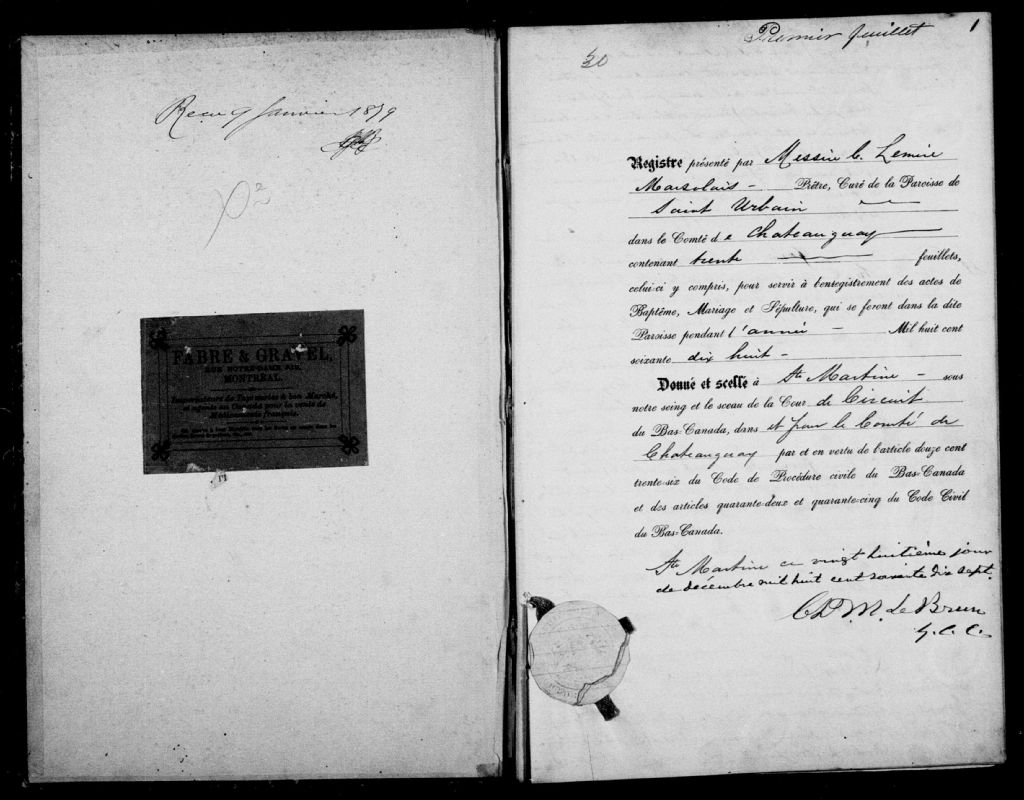 Recu 9 Janvier 1879
FABRE & GRAVEL,
RUE NOTRE-DAME 219,
MONTREAL.
Importateurs de Tapisseries à bon Marché,
et agents au Canada pour la vente de
Médicaments français.
Premier feuillet 1
30
Registre présenté par Messire C. Lemire
Marsolais - Prêtre, Curé de la Paroisse de
Saint Urbain
dans le Comté de Chateauguay
contenant trente feuillets,
celui-ci y compris, pour servir à l'enregistrement des actes de
Baptême, Mariage et Sépulture, qui se feront dans la dite
Paroisse pendant l'année - Mil huit cent
soixante dix huit -
Donné et scellé à Ste Martine - sous
notre seing et le sceau de la Cour de Circuit
du Bas-Canada, dans et pour le Comté de
Chateauguay par et en vertu de l'article douze cent
trente-six du Code de Procédure civile du Bas-Canada
et des articles quarante-deux et quarante-cinq du Code Civil
du Bas-Canada.
Ste Martine ce vingt huitième jour
de décembre mil huit cent soixante dix sept.
M. LeBrun
G. C. C.